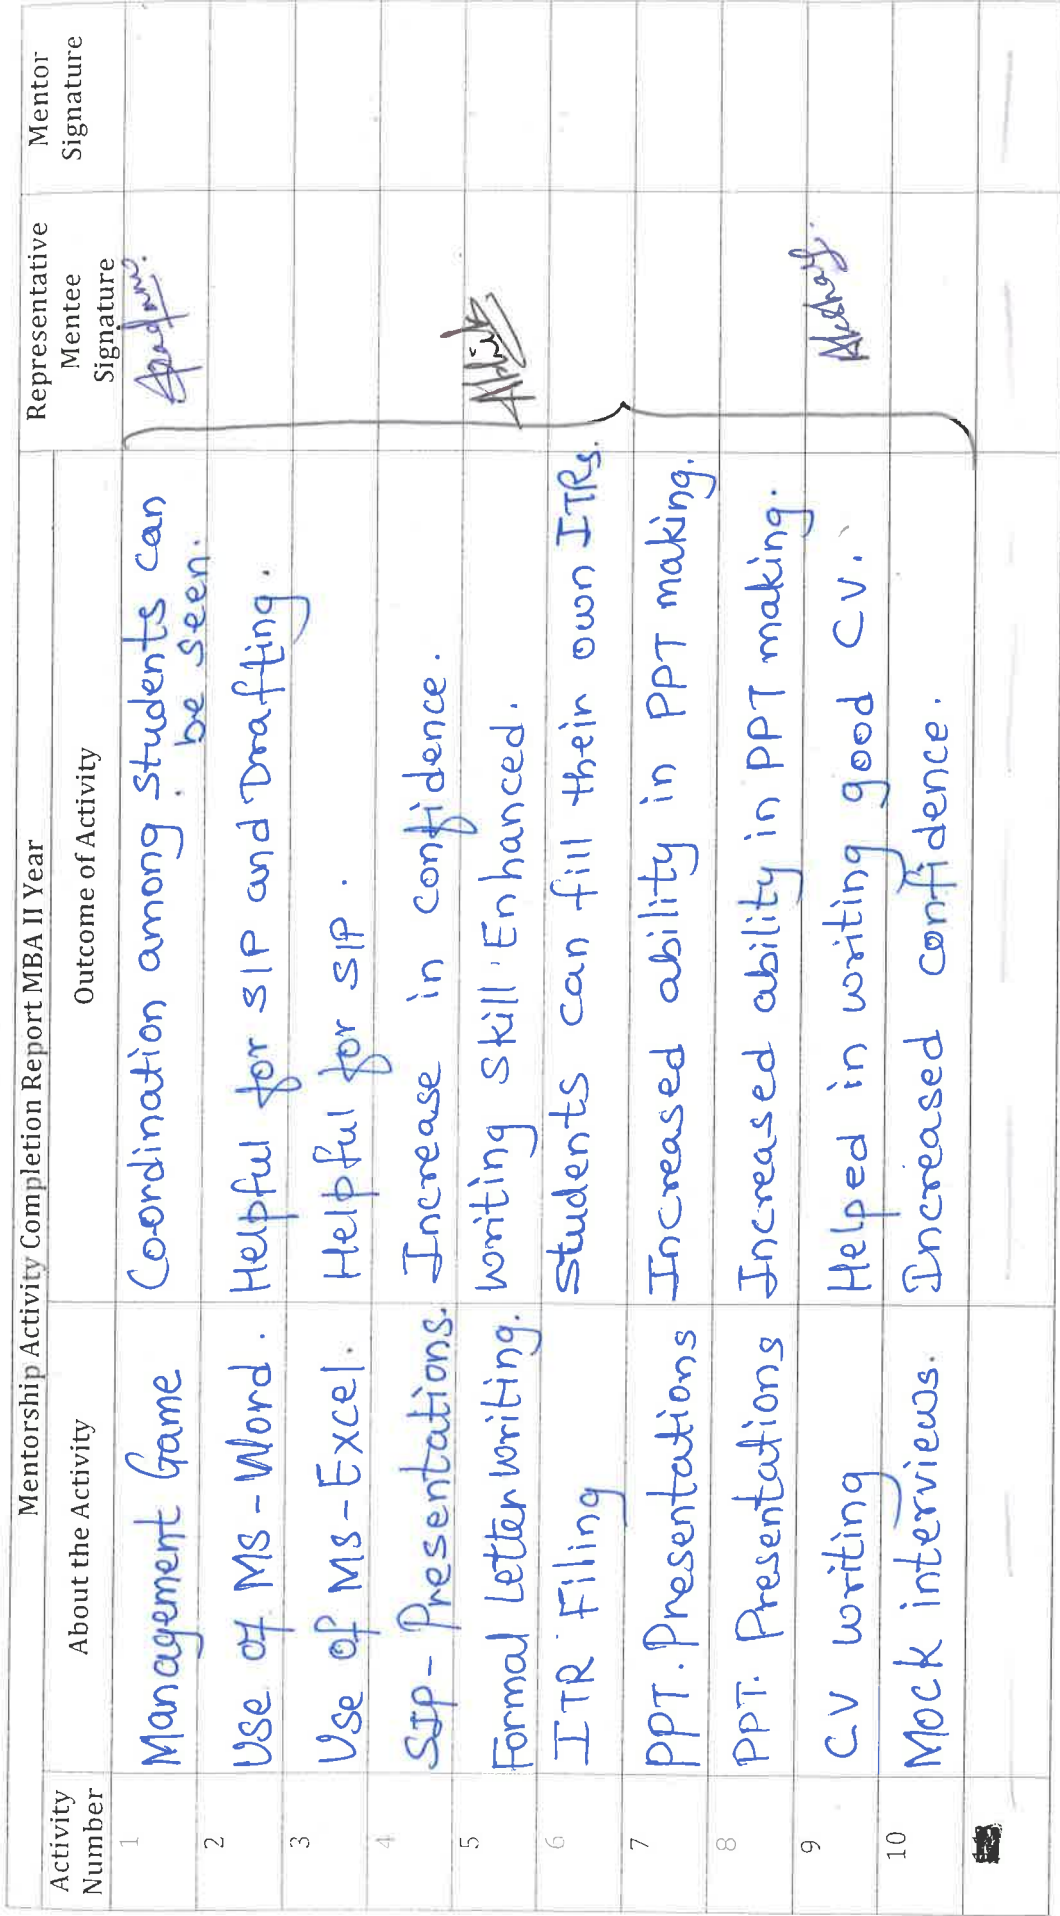 Mentorship Activity Completion Report MBA II Year
Activity Number
About the Activity
Outcome of Activity
Representative Mentee Signature
Mentor Signature
1 Management Game Co-ordination among students can
be seen.
2 Use of MS-Word. Helpful for SIP and Drafting.
3 Use of MS-Excel. Helpful for SIP.
4 SIP- Presentations. Increase in confidence.
5 Formal Letter writing. Writing Skill Enhanced.
6 ITR Filing Students can fill their own ITRs.
7 PPT. Presentations Increased ability in PPT making.
8 PPT. Presentations Increased ability in PPT making.
9 CV writing Helped in writing good CV.
10 Mock interviews. Increased confidence.